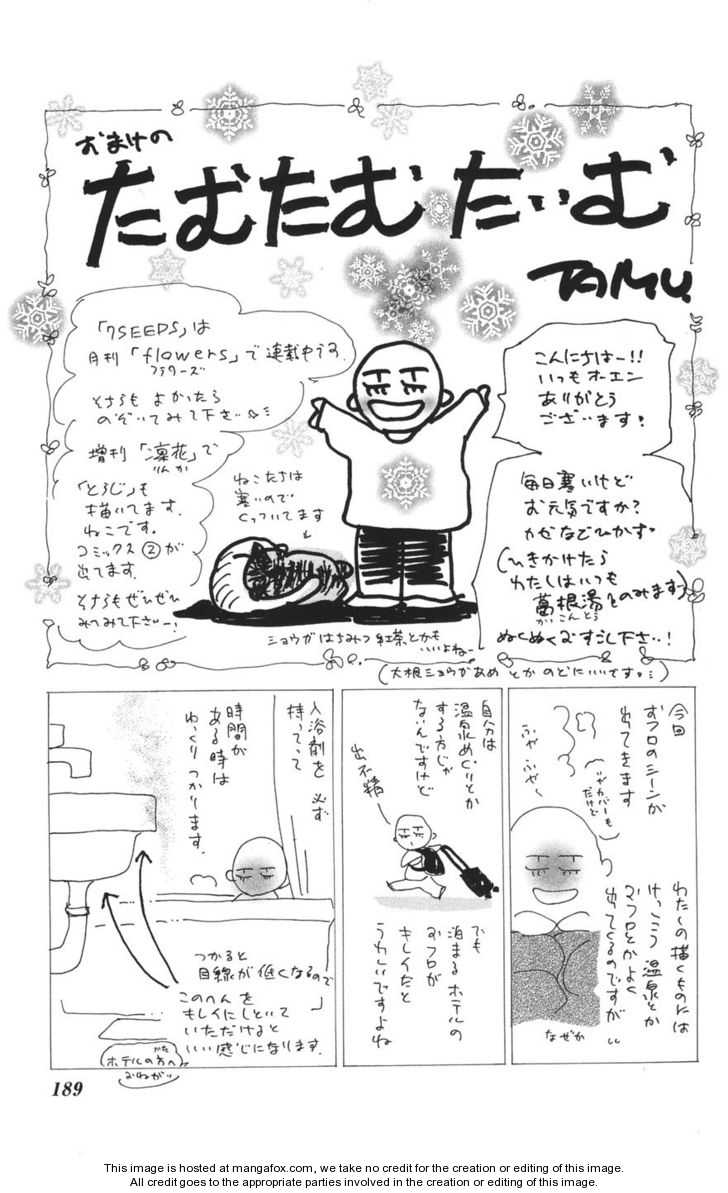 おまけの
たむたむたいむ
TAMU
こんにちはー!!
いつもオーエン
ありがとう
ございます!
毎日寒いけど
お元気ですか?
カゼなどひかず
(ひきかけたら
わたしはいつも
葛根湯をのみます)
かっこんとう
ぬくぬくおすごし下さい!
(大根ショウガあめ とか のどにいいです。)
「7SEEDS」は
月刊「flowers」で連載中です。
フラワーズ
そちらも よかったら
のぞいてみて下さい
増刊「凛花」で
りんか
「とらじ」も
描いてます。
ねこです。
コミックス②が
出てます。
そちらもぜひぜひ
みてみて下さいー!
ねこたちは
寒いので
くっついてます
ショウガはちみつ紅茶とかも
いいよねー
今回
おフロのシーンが
出てきます
(カバーも
だけど)
ふや ふや〜
わたしの描くものには
けっこう 温泉とか
おフロとかよく
出てくるのですが
なぜか
自分は
温泉めぐりとか
する方じゃ
ないんですけど
出不精
でも
泊まるホテルの
おフロが
キレイだと
うれしいですよね
入浴剤を 必ず
持ってって
時間が
ある時は
ゆっくりつかります。
つかると
目線が低くなるので
このへんを
キレイにしといて
いただけると
いい感じになります。
ホテルの方へ
かた
おねがい
189
This image is hosted at mangafox.com, we take no credit for the creation or editing of this image.
All credit goes to the appropriate parties involved in the creation or editing of this image.